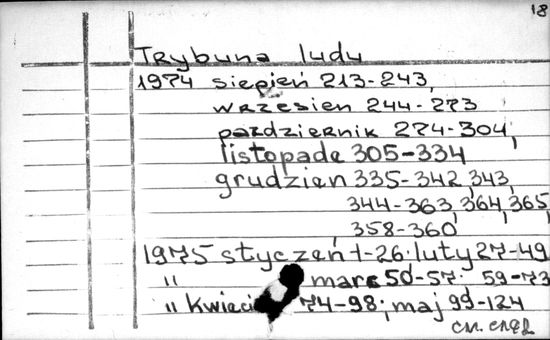 18
Trybuna ludu
1974 siepień 213-243,
wrzesien 244-273
pazdziernik 274-304,
listopade 305-334
grudzien 335-342, 343,
344-363, 364, 365,
358-360
1975 styczeń 1-26. luty 27-49
" marc 50-57; 59-73
" Kwieci 74-98; maj 99-124
см. след